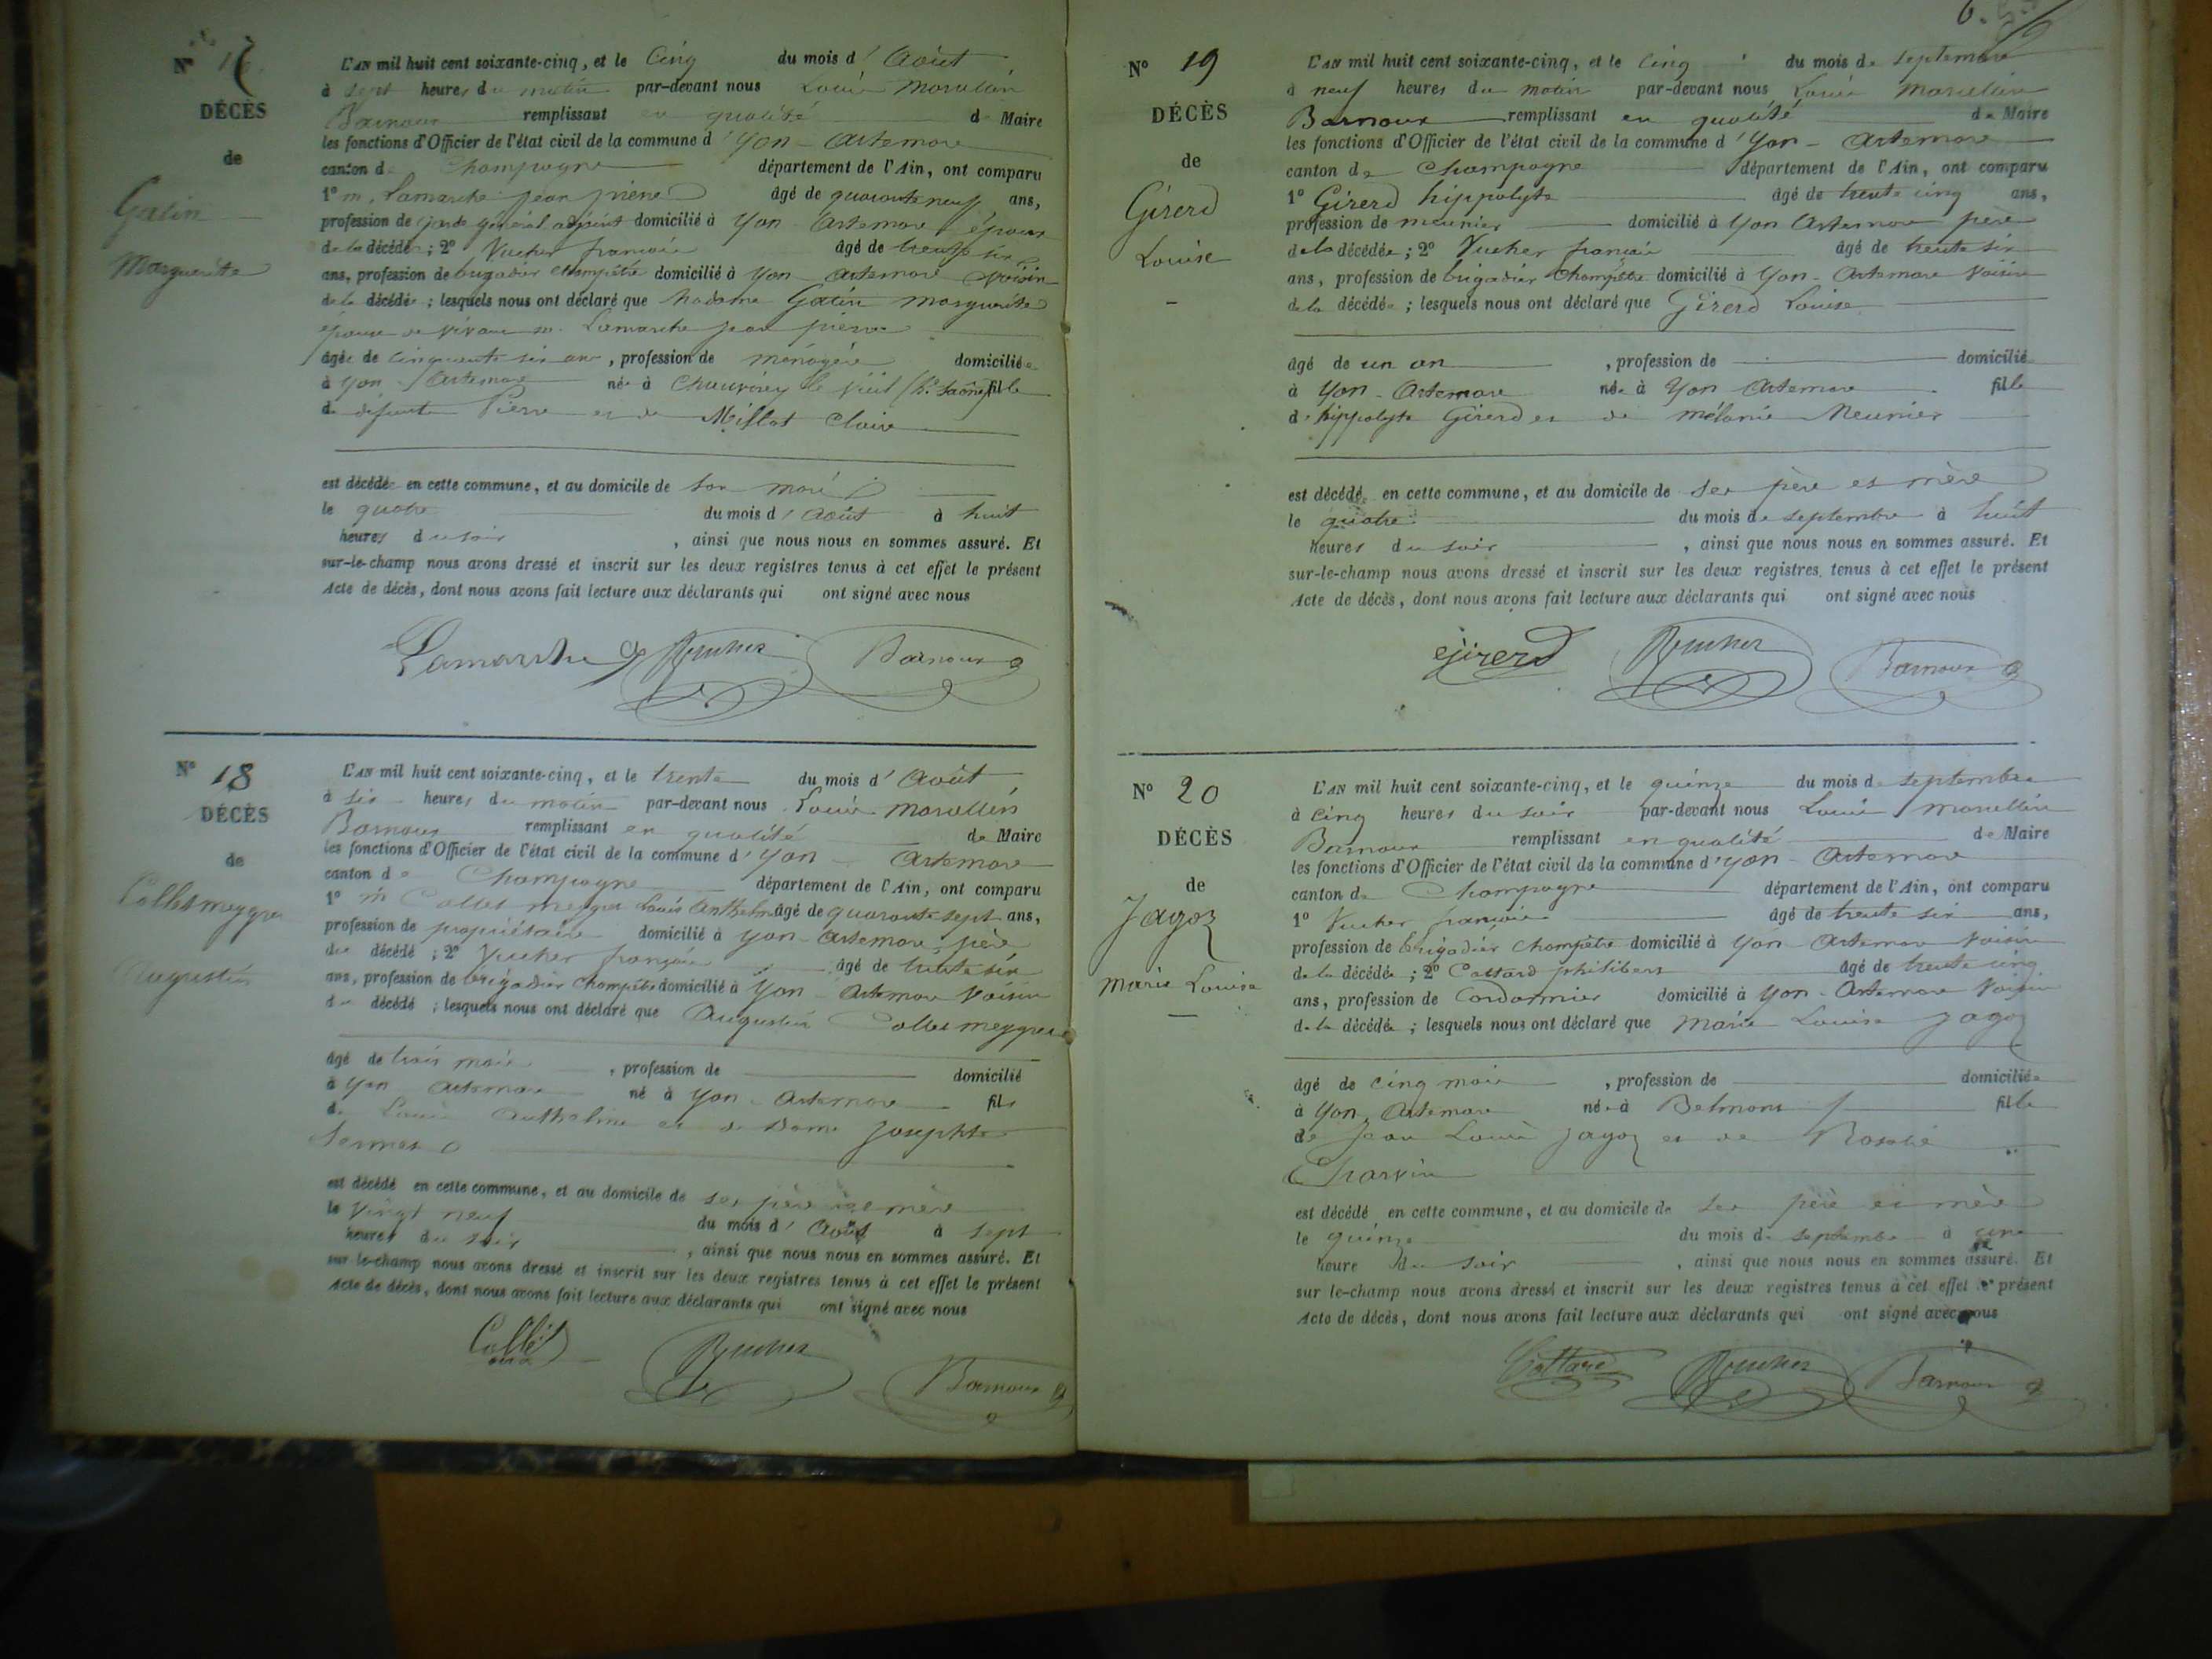 N° 17
DÉCÈS
de
Gatin
Marguerite
L'AN mil huit cent soixante-cinq, et le Cinq du mois d'Août
à sept heures du matin par-devant nous Louis Marcellin
Barnoux remplissant en qualité de Maire
les fonctions d'Officier de l'état civil de la commune d'Yon-Artemare
canton de Champagne département de l'Ain, ont comparu
1° m. Lamarche jean pierre âgé de quarante neuf ans,
profession de garde général adjoint domicilié à Yon Artemare époux
de la décédée; 2° Vucher françois âgé de trente six
ans, profession de brigadier champêtre domicilié à Yon-Artemare voisin
de la décédée; lesquels nous ont déclaré que Madame Gatin marguerite
épouse de vivant m. Lamarche jean pierre
âgée de cinquante six ans, profession de ménagère domiciliée
à Yon-Artemare née à Chauvirey le Vieil (hte Saône) fille
de défunts Pierre et de Millot Claire
est décédée en cette commune, et au domicile de son mari
le quatre du mois d'Août à huit
heures du soir, ainsi que nous nous en sommes assuré. Et
sur-le-champ nous avons dressé et inscrit sur les deux registres tenus à cet effet le présent
Acte de décès, dont nous avons fait lecture aux déclarants qui ont signé avec nous
Lamarche Vucher Barnoux
N° 18
DÉCÈS
de
Colletmeygre
Augustin
L'AN mil huit cent soixante-cinq, et le trente du mois d'Août
à six heures du matin par-devant nous Louis Marcellin
Barnoux remplissant en qualité de Maire
les fonctions d'Officier de l'état civil de la commune d'Yon-Artemare
canton de Champagne département de l'Ain, ont comparu
1° m Collet meygret Louis Anthelme âgé de quarante sept ans,
profession de propriétaire domicilié à Yon-Artemare, père
du décédé; 2° Vucher françois âgé de trente six
ans, profession de brigadier champêtre domicilié à Yon-Artemare voisin
du décédé; lesquels nous ont déclaré que Augustin Collet meygret
âgé de trois mois, profession de domicilié
à Yon Artemare né à Yon-Artemare fils
de Louis Anthelme et de Dame Josephte
est décédé en cette commune, et au domicile de ses père et mère
le vingt neuf du mois d'Août à sept
heures du soir, ainsi que nous nous en sommes assuré. Et
sur-le-champ nous avons dressé et inscrit sur les deux registres tenus à cet effet le présent
Acte de décès, dont nous avons fait lecture aux déclarants qui ont signé avec nous
Collet Vucher Barnoux
6.
N° 19
DÉCÈS
de
Girerd
Louise
L'AN mil huit cent soixante-cinq, et le Cinq du mois de septembre
à neuf heures du matin par-devant nous Louis Marcellin
Barnoux remplissant en qualité de Maire
les fonctions d'Officier de l'état civil de la commune d'Yon-Artemare
canton de Champagne département de l'Ain, ont comparu
1° Girerd hippolyte âgé de trente cinq ans,
profession de meunier domicilié à Yon Artemare père
de la décédée; 2° Vucher françois âgé de trente six
ans, profession de brigadier champêtre domicilié à Yon-Artemare voisin
de la décédée; lesquels nous ont déclaré que Girerd Louise
âgé de un an, profession de domicilié
à Yon-Artemare née à Yon Artemare fille
d'hippolyte Girerd et de mélanie Meunier
est décédée en cette commune, et au domicile de ses père et mère
le quatre du mois de septembre à huit
heures du soir, ainsi que nous nous en sommes assuré. Et
sur-le-champ nous avons dressé et inscrit sur les deux registres tenus à cet effet le présent
Acte de décès, dont nous avons fait lecture aux déclarants qui ont signé avec nous
Girerd Vucher Barnoux
N° 20
DÉCÈS
de
Jagoz
Marie Louise
L'AN mil huit cent soixante-cinq, et le quinze du mois de septembre
à Cinq heures du soir par-devant nous Louis Marcellin
Barnoux remplissant en qualité de Maire
les fonctions d'Officier de l'état civil de la commune d'Yon-Artemare
canton de Champagne département de l'Ain, ont comparu
1° Vucher françois âgé de trente six ans,
profession de brigadier champêtre domicilié à Yon-Artemare voisin
de la décédée; 2° Cottard philibert âgé de trente cinq
ans, profession de Cordonnier domicilié à Yon-Artemare voisin
de la décédée; lesquels nous ont déclaré que Marie Louise Jagoz
âgé de cinq mois, profession de domiciliée
à Yon, Artemare née à Belmont fille
de Jean Louis Jagoz et de Rosalie
Charvin
est décédé en cette commune, et au domicile de ses père et mère
le quinze du mois de septembre à une
heure du soir, ainsi que nous nous en sommes assuré. Et
sur le-champ nous avons dressé et inscrit sur les deux registres tenus à cet effet le présent
Acte de décès, dont nous avons fait lecture aux déclarants qui ont signé avec nous
Cottard Vucher Barnoux